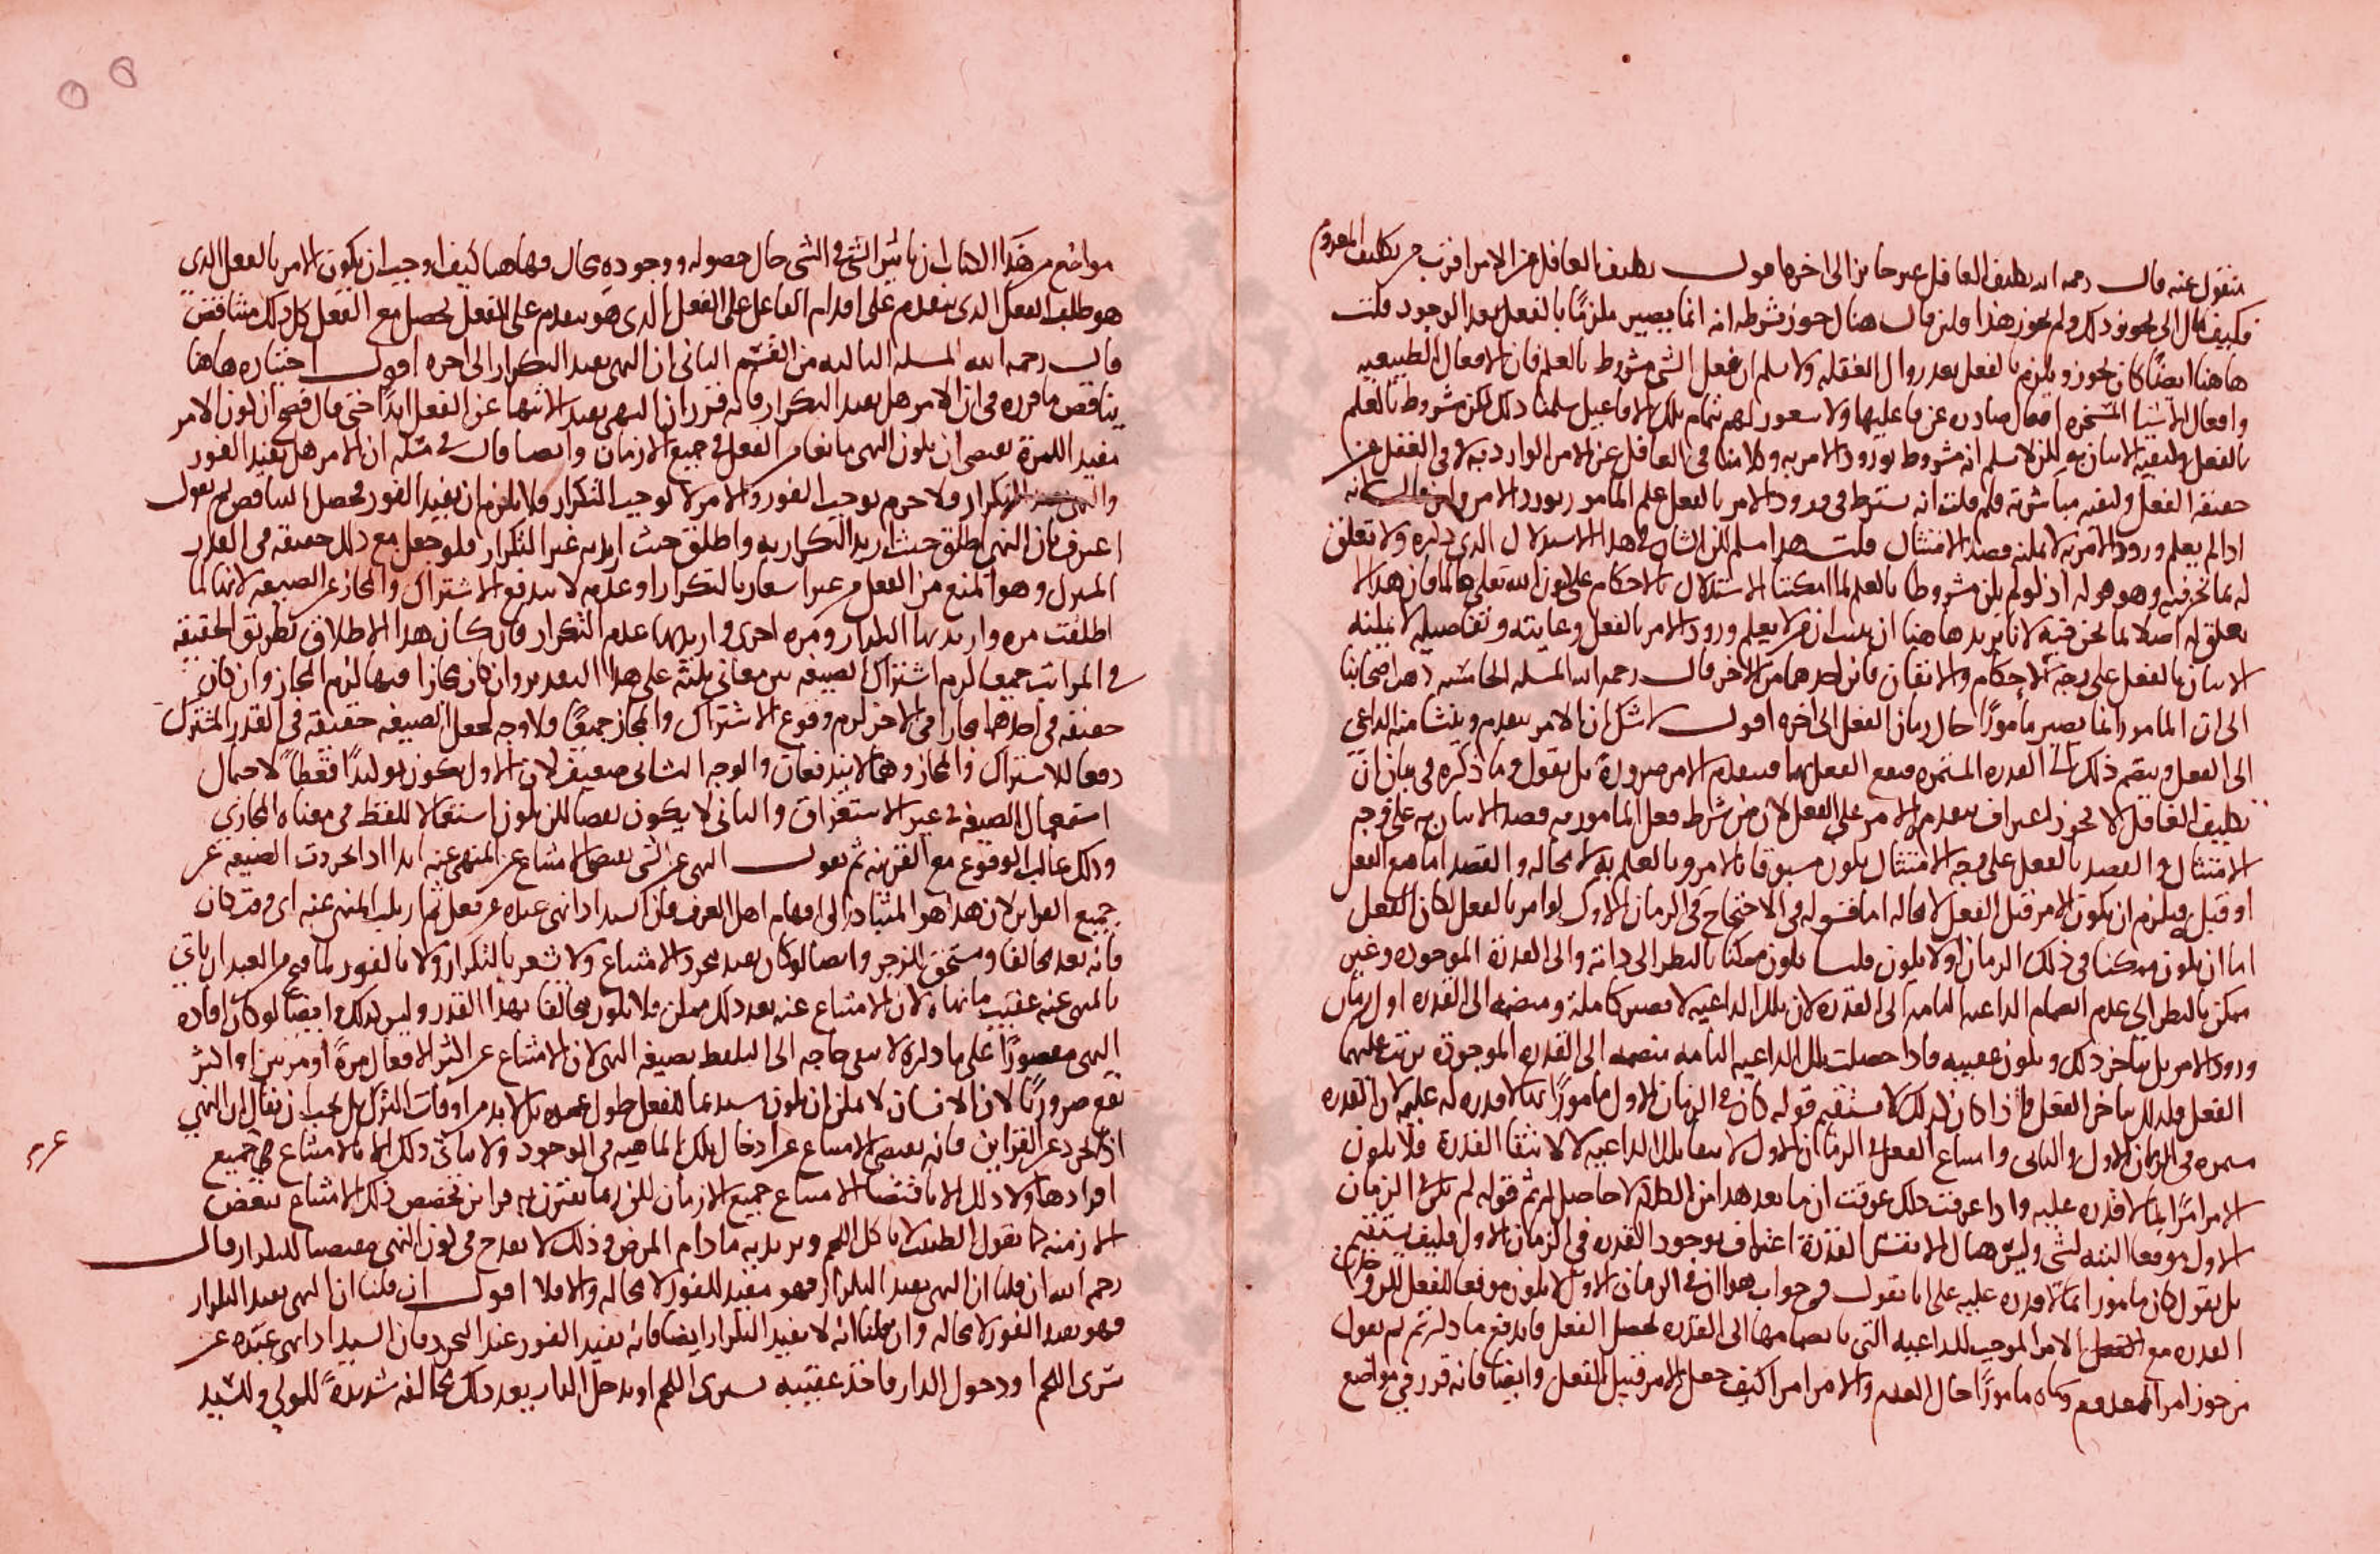 منقول عنه قال رحمه الله تكليف الغافل غير جائز الى اخره اقول تكليف الغافل عن الامر اقرب من تكليف المعدوم
فكيف قال الى تجويز ذلك ولم يجوز هذا ولئن قال هناك جوز بشرط انه انما يصير ملزمًا بالفعل بعد الوجود قلت
هاهنا ايضًا كان يجوز ويلزم بالفعل بعد زوال الغفلة ولا نسلم ان فعل الشى مشروط بالعلم فان الافعال الطبيعيه
وافعال الاشيا المسخره افعال صادره عن فاعليها ولا شعور لهم بتمام تلك الافاعيل سلمنا ذلك لكن مشروط بالعلم
بالفعل ولكيفية الاتيان به لكن لا نسلم انه مشروط بورود الامر به وكلامنا فى الغافل عن الامر الوارد به لا فى الغفل عن
حقيقة الفعل وكيفية مباشرته فلم قلت انه يشترط فى ورود الامر بالفعل علم المامور بورود الامر ولئن قال انه
اذا لم يعلم ورود الامر به لا يمكنه قصد الامتثال قلت هذا مسلم لكن الشان فى هذا الاستدلال الذى ذكره ولا تعلق
له بما نحن فيه وهو قوله اذ لو لم يكن مشروطا بالعلم لما امكننا الاستدلال بالاحكام على كون الله تعالى عالما فان هذا لا
تعلق له اصلا بما نحن فيه لانا نريد هاهنا ان نبين ان من لا يعلم ورود الامر بالفعل وغايته وتفاصيله لا يمكنه
الاتيان بالفعل على وجه الاحكام والاتقان فاين احدهما من الاخر قال رحمه الله المسله الخامسه ذهب اصحابنا
الى ان المامور انما يصير مامورًا حال زمان الفعل الى اخره اقول لا شك ان الامر يتقدم وينشا منه الداعى
الى الفعل وينضم ذلك الى القدره المستمره فيقع الفعل بهما فيتقدم الامر ضرورة بل نقول وما ذكره فى بيان ان
تكليف الغافل لا يجوز اعتراف بتقدم الامر على الفعل لان من شرط فعل المامور به قصد الاتيان به على وجه
الامتثال والقصد بالفعل على وجه الامتثال يكون مسبوقا بالامر وبالعلم به لا محاله والقصد اما مع الفعل
او قبله فيلزم ان يكون الامر قبل الفعل لا محاله اما قوله فى الاحتجاج فى الزمان الاول لو امر بالفعل لكان الفعل
اما ان يكون ممكنا فى ذلك الزمان او لا يكون قلنا يكون ممكنا بالنظر الى ذاته والى القدرة الموجوده وغير
ممكن بالنظر الى عدم انضمام الداعيه التامه الى القدره لان تلك الداعيه لا تصير كاملة ومنضمه الى القدره اول زمان
ورود الامر بل يتاخر ذلك ويكون عقيبه فاذا حصلت تلك الداعيه التامه منضمه الى القدره الموجودة ترتب عليهما
الفعل فلذلك يتاخر الفعل واذا كان كذلك لا يستقيم قوله كان فى الزمان الاول مامورًا بما لا قدره له عليه لان القدره
مستمره فى الزمان الاول والثانى وامتناع الفعل فى الزمان الاول لانتفا تلك الداعيه لا لانتفا القدرة فلا يكون
الامر امرًا بما لا قدره عليه واذا عرفت ذلك عرفت ان ما بعد هذا من الكلام لا حاصل له ثم قوله لم يكن فى الزمان
الاول موقعا البته لشى وليس هناك الا نفس القدرة اعتراف بوجود القدره فى الزمان الاول فكيف يستقيم
بل نقول كان مامورا بما لا قدره عليه على انا نقول فى جواب هو ان فى الزمان الاول لا يكون موقعا للفعل لكن وجدت
القدره مع الفعل الامر الموجب للداعيه التى بانضمامها الى القدره يحصل الفعل فاندفع ما ذكرتم ثم نقول
من جوز امر المعدوم وكونه مامورًا حال العدم والامر امرا كيف جعل الامر قبيل الفعل وايضا فانه قرر فى مواضع
مواضع من هذا الكتاب ان تاثير الشى فى الشى حال حصوله ووجوده محال فهاهنا كيف اوجب ان يكون الامر بالفعل الذى
هو طلب الفعل الذى يتقدم على اقدام الفاعل على الفعل الذى هو يتقدم على الفعل يحصل مع الفعل كل ذلك متناقض
قال رحمه الله المسله الثالثه من القسم الثانى ان النهى يفيد التكرار الى اخره اقول اختياره هاهنا
يناقض ما قرره فى ان الامر هل يفيد التكرار فانه قرر ان النهى يفيد الانتها عن الفعل ابدًا حتى قال فصح ان كون الامر
مفيد للمرة يقتضى ان يكون النهى مانعا من الفعل فى جميع الازمان وايضا قال فى مسله ان الامر هل يفيد الفور
والنهى يفيد التكرار فلا جرم يوجب الفور والامر لا يوجب التكرار فلا يلزم ان يفيد الفور فحصل التناقض ثم نقول
اعترف بان النهى اطلق حيث اريد التكرار به واطلق حيث اريد به غير التكرار فلو جعل مع ذلك حقيقه فى القدر
المشترك وهو المنع من الفعل من غير اشعار بالتكرار او عدمه لا يندفع الاشتراك والمجاز عن الصيغه لانها لما
اطلقت مره واريد بها التكرار ومره اخرى واريد بها عدم التكرار فان كان هذا الاطلاق بطريق الحقيقه
فى المراتب جميعا لزم اشتراك الصيغه بين معانى ثلثة على هذا التقدير وان كان مجازا فيها لزم المجاز وان كان
حقيقه فى احدهما مجازا فى الاخر لزم وقوع الاشتراك والمجاز جميعًا فلا وجه لجعل الصيغه حقيقة فى القدر المشترك
دفعا للاشتراك والمجاز وهما لا يندفعان والوجه الثانى ضعيف لان الاول يكون توكيدًا قطعاً لاحتمال
استعمال الصيغه فى غير الاستغراق والثانى لا يكون نقضا لكن يكون استعمالا للفظ فى معناه المجازى
وذلك غالب الوقوع مع القرينه ثم نقول النهى عن الشى يقتضى الامتناع عن المنهى عنه ابدا اذا تجردت الصيغه عن
جميع القراين لان هذا هو المتبادر الى افهام اهل العرف فان السيد اذا نهى عبده عن فعل ثم ارتكب المنهى عنه اى وقت كان
فانه يعد مخالفا ومستحق للزجر وايضا لو كان يفيد مجرد الامتناع ولا يشعر بالتكرار ولا بالفور لما قبح من العبد ان ياتى
بالمنهى عنه عقيب ما نهاه لان الامتناع عنه بعد ذلك ممكن فلا يكون مخالفا بهذا القدر وليس كذلك وايضا لو كان افاده
النهى مقصورًا على ما ذكره لا يبقى حاجه الى التلفظ بصيغه النهى لان الامتناع عن اكثر الافعال مرةً او مرتين او اكثر
تقع ضروريًا لان الانسان لا يمكن ان يكون مستديما للفعل طول عمره بل لا بد من اوقات الترك بل يجب ان يقال ان النهى
اذا تجرد عن القراين فانه يقتضى الامتناع عن ادخال تلك الماهيه فى الوجود ولا يتاتى ذلك الا بالامتناع عن جميع
افرادها ولا ذلك الا باقتضا الامتناع جميع الازمان لكن ربما يقترن به قراين تخصص ذلك الامتناع ببعض
الازمنه كما يقول الطبيب لا تاكل اللحم ويريد به ما دام المرض وذلك لا يقدح فى كون النهى مقتضيا للتكرار قال
رحمه الله ان قلنا ان النهى يفيد التكرار فهو مفيد للفور لا محاله والا فلا اقول ان قلنا ان النهى يفيد التكرار
فهو يفيد الفور لا محاله وان قلنا انه لا يفيد التكرار ايضا فانه يفيد الفور عند التجرد فان السيد اذا نهى عبده عن
شرى اللحم او دخول الدار فاخذ عقيبه يشرى اللحم او يدخل الدار يعد ذلك مخالفه شديدةً للمولى وللسيد